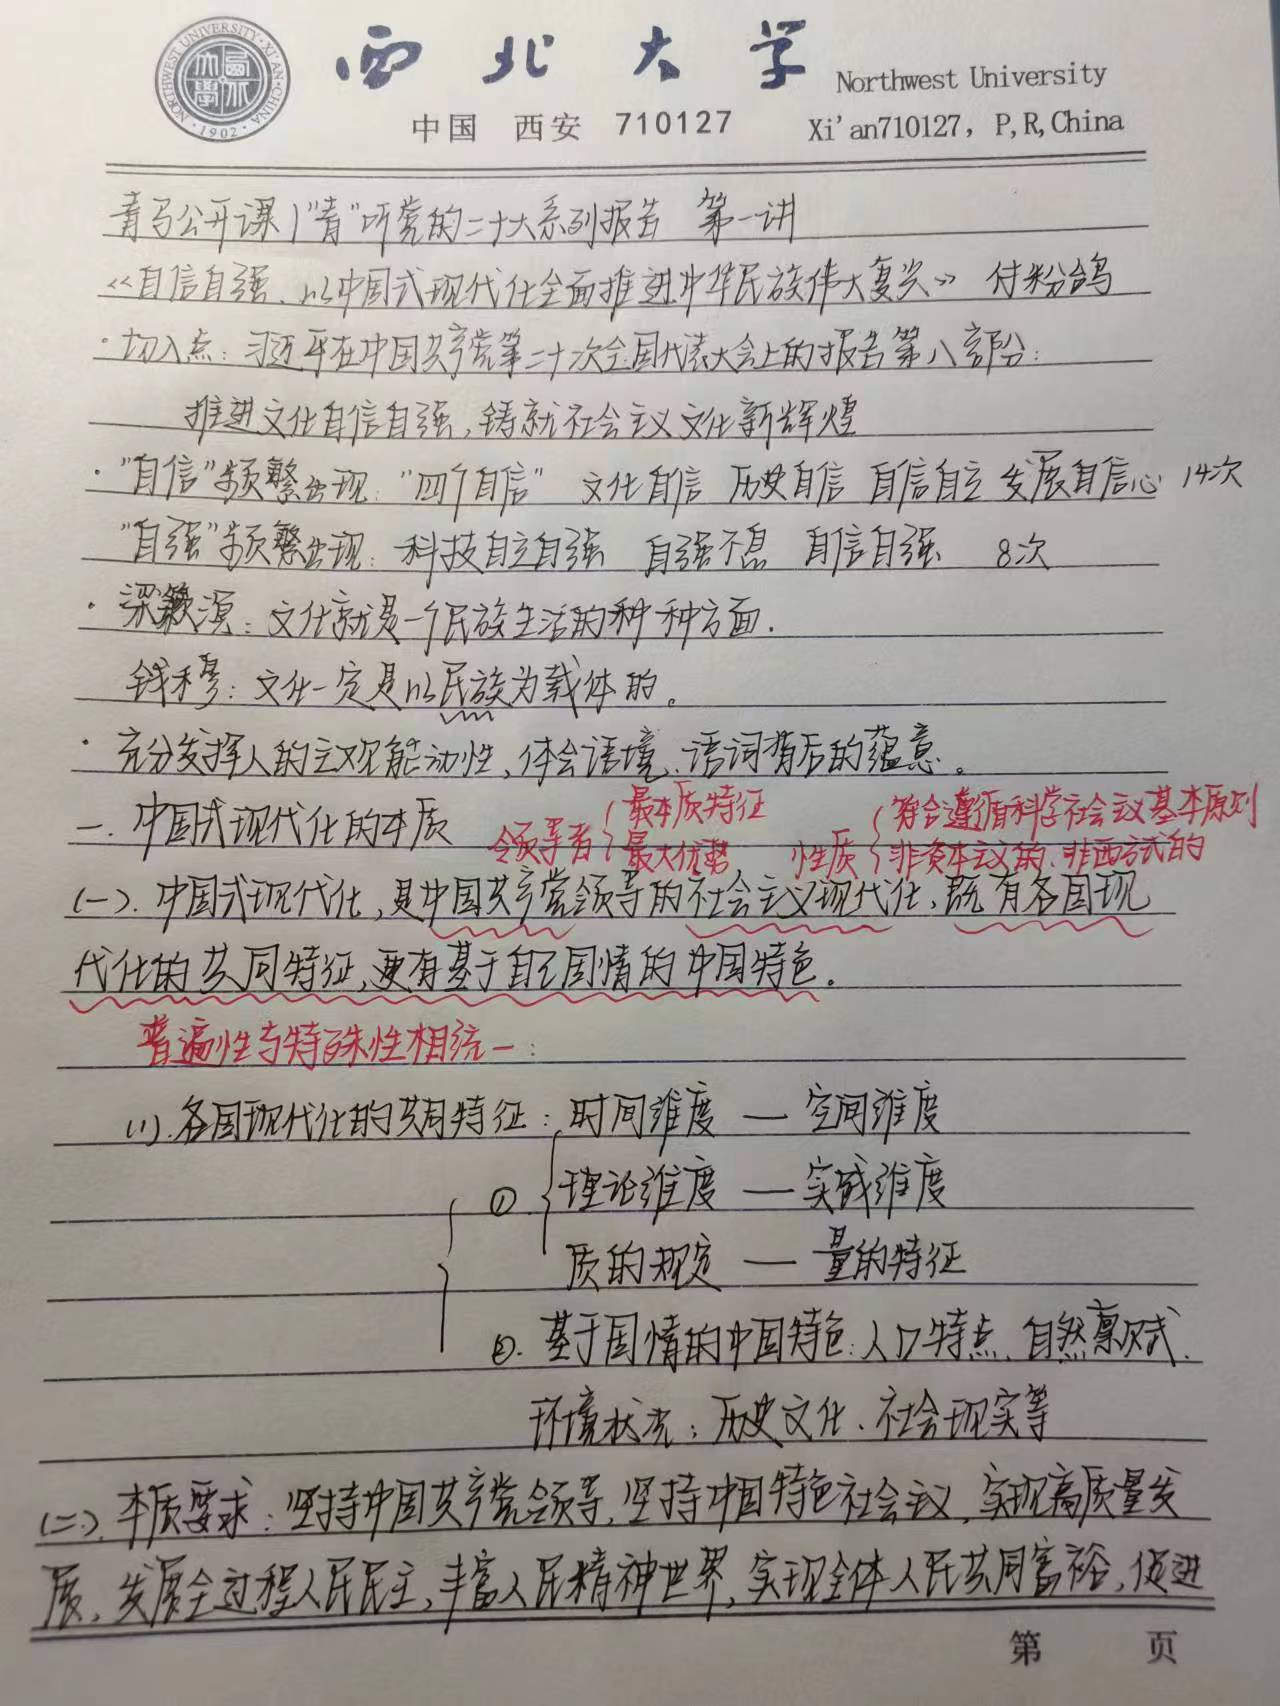 西北大学
Northwest University
中国 西安 710127
Xi'an710127, P,R,China
NORTHWEST UNIVERSITY·XI'AN·CHINA
·1902·
青马公开课|"青"听党的二十大系列报告 第一讲
《自信自强、以中国式现代化全面推进中华民族伟大复兴》 付粉鸽
·切入点:习近平在中国共产党第二十次全国代表大会上的报告第八部分:
推进文化自信自强,铸就社会主义文化新辉煌
·"自信"频繁出现:"四个自信" 文化自信 历史自信 自信自立 发展自信心 14次
"自强"频繁出现:科技自立自强 自强不息 自信自强 8次
·梁漱溟:文化就是一个民族生活的种种方面.
钱穆:文化一定是以民族为载体的。
·充分发挥人的主观能动性,体会语境、语词背后的蕴意。
一.中国式现代化的本质
领导者 最本质特征
最大优势
性质 符合遵循科学社会主义基本原则
非资本主义的、非西方式的
(一).中国式现代化,是中国共产党领导的社会主义现代化,既有各国现
代化的共同特征,更有基于自己国情的中国特色.
普遍性与特殊性相统一:
(1).各国现代化的共同特征:时间维度 — 空间维度
① 理论维度 — 实践维度
质的规定 — 量的特征
②.基于国情的中国特色:人口特点、自然禀赋、
环境状况;历史文化、社会现实等
(二).本质要求:坚持中国共产党领导,坚持中国特色社会主义,实现高质量发
展,发展全过程人民民主,丰富人民精神世界,实现全体人民共同富裕,促进
第 页